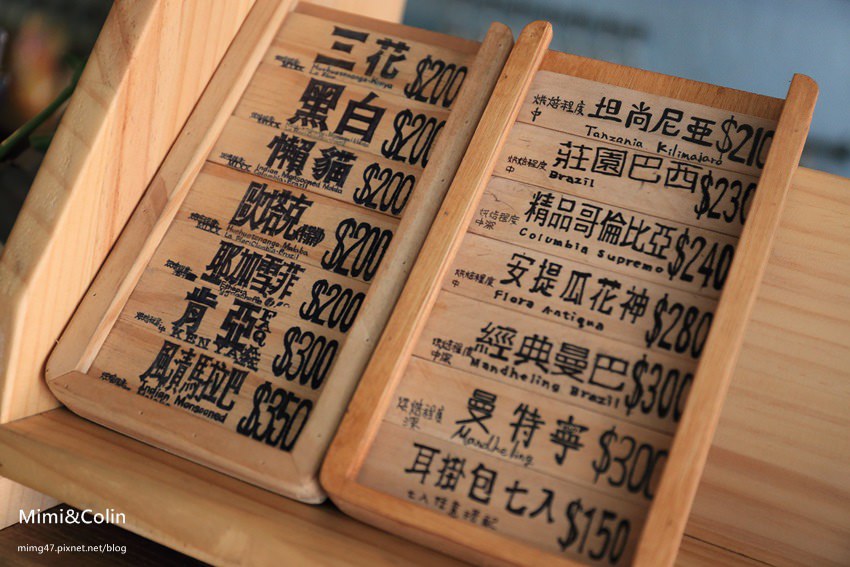 三花 $200
黑白 $200
懶貓 $200
Indian Monsooned Malaba
歐塔克 $200
Huehuesmanga-Malaba
耶加雪菲 $200
肯亞 $300
KENYA
風漬馬拉巴 $350
Indian Monsooned
烘焙程度 中 坦尚尼亞 $210
Tanzania Kilimajaro
烘焙程度 中 莊園巴西 $230
Brazil
烘焙程度 中深 精品哥倫比亞 $240
Columbia Supremo
烘焙程度 中 安提瓜花神 $280
Flora Antiqua
烘焙程度 中深 經典曼巴 $300
Mandheling Brazil
烘焙程度 深 曼特寧 $300
Mandheling
耳掛包七入 $150
Mimi&Colin
mimg47.pixnet.net/blog